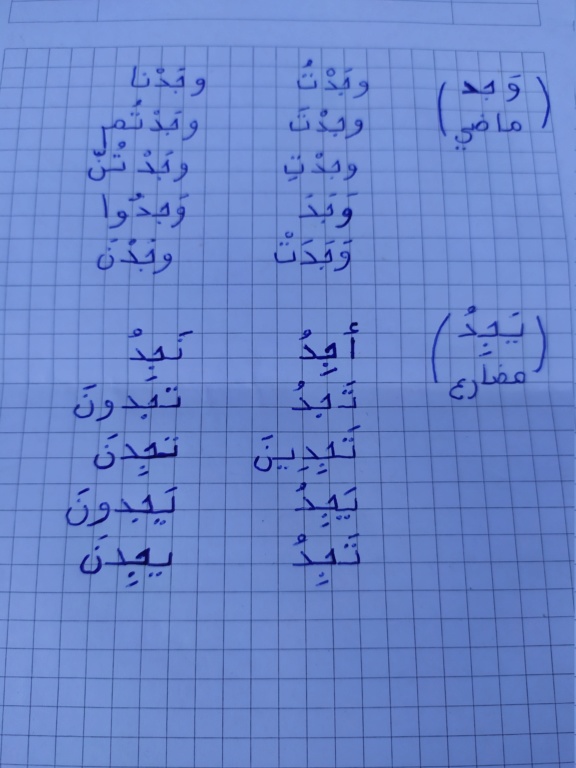 (وَجد وجَدْتُ وجَدْنا
ماضي) وجَدْتَ وجَدْتُم
وجَدْتِ وجَدْتُنَّ
وَجَدَ وَجدُوا
وَجَدَتْ وجَدْنَ
(يَجِدُ أجِدُ نَجِدُ
مضارع) تَجِدُ تَجِدونَ
تَجِدِينَ تَجِدنَ
يَجِدُ يَجِدونَ
تَجِدُ يجِدنَ